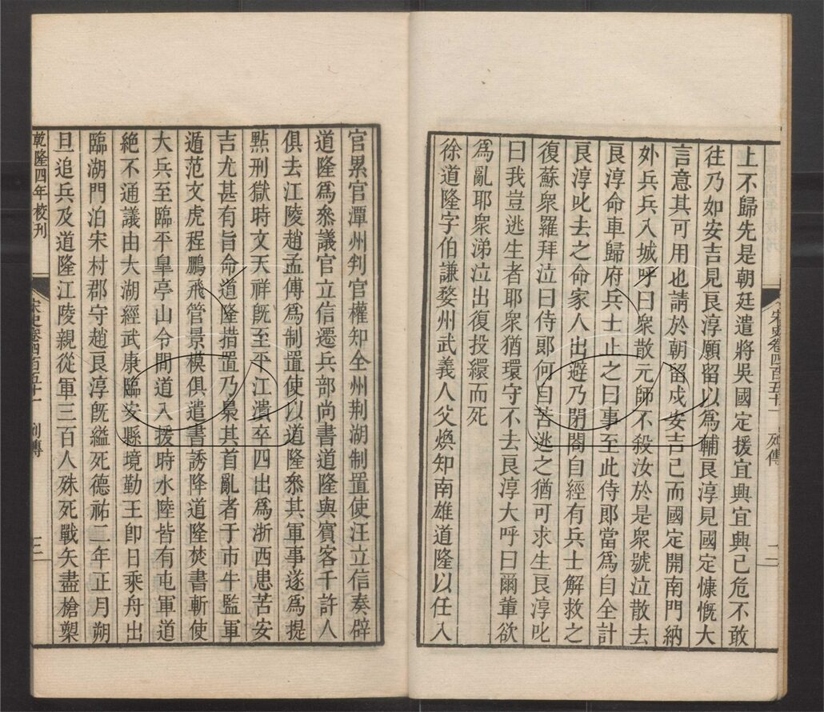 上不歸先是朝廷遣將吳國定援宜興宜興已危不敢
往乃如安吉見良淳願留以爲輔良淳見國定慷慨大
言意其可用也請於朝留戍安吉已而國定開南門納
外兵兵入城呼曰衆散元師不殺汝於是衆號泣散去
良淳命車歸府兵士止之曰事至此侍郎當爲自全計
良淳叱去之命家人出避乃閉閤自經有兵士解救之
復蘇衆羅拜泣曰侍郎何自苦逃之猶可求生良淳叱
曰我豈逃生者耶衆猶環守不去良淳大呼曰爾輩欲
爲亂耶衆涕泣出復投繯而死
徐道隆字伯謙婺州武義人父煥知南雄道隆以任入
宋史卷四百五十一 列傳 二
官累官潭州判官權知全州荆湖制置使汪立信奏辟
道隆爲叅議官立信遷兵部尚書道隆與賓客千許人
俱去江陵趙孟傳爲制置使以道隆叅其軍事遂爲提
點刑獄時文天祥旣至平江潰卒四出爲浙西患苦安
吉尤甚有旨命道隆措置乃梟其首亂者于市牛監軍
遁范文虎程鵬飛管景模俱遣書誘降道隆焚書斬使
大兵至臨平臯亭山令間道入援時水陸皆有屯軍道
絶不通議由大湖經武康臨安縣境勤王卽日乘舟出
臨湖門泊宋村郡守趙良淳旣縊死德祐二年正月朔
旦追兵及道隆江陵親從軍三百人殊死戰矢盡槍槊
乾隆四年校刊
宋史卷四百五十一 列傳 三